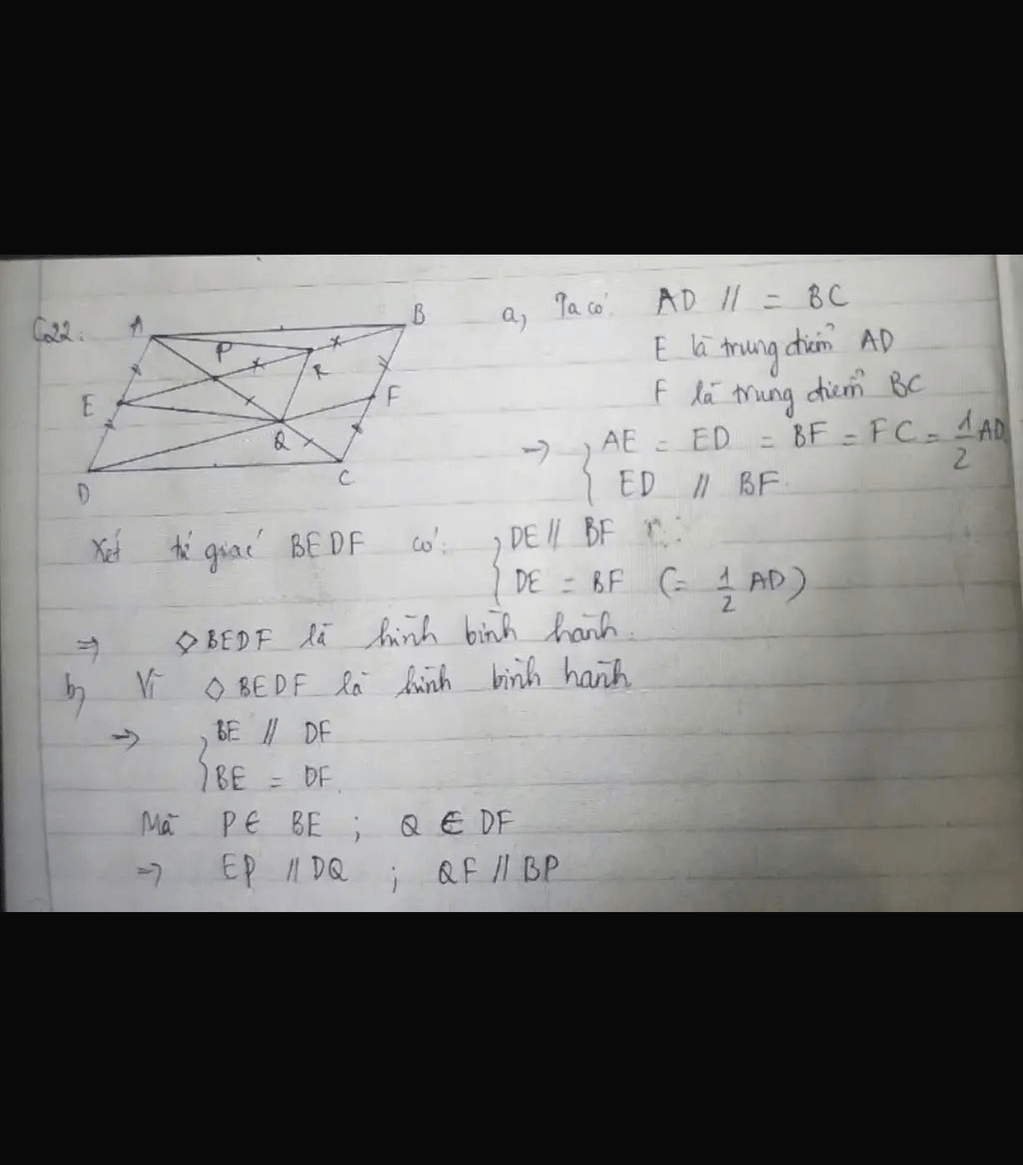 C22:
A
B
P
R
E
F
Q
D
C
a, Ta có: AD // = BC
E là trung điểm AD
F là trung điểm BC
=> { AE = ED = BF = FC = 1/2 AD
ED // BF.
Xét tứ giác BEDF có: { DE // BF
DE = BF (= 1/2 AD)
=> ◇BEDF là hình bình hành.
b, Vì ◇BEDF là hình bình hành
=> { BE // DF
BE = DF.
Mà P ∈ BE ; Q ∈ DF
=> EP // DQ ; QF // BP